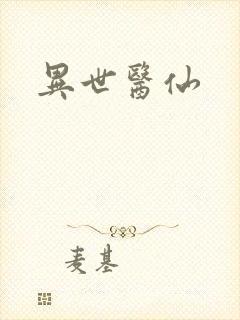 異世醫仙
麦基